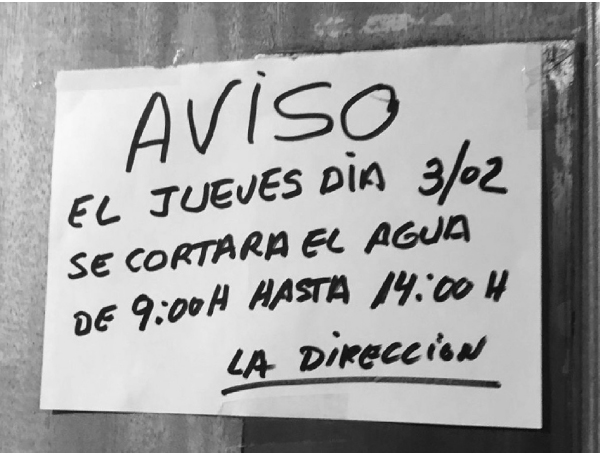 AViSO
EL JUEVES DiA 3/02
SE CORTARA EL AGUA
DE 9:00H HASTA 14:00 H
LA DiRECCiON